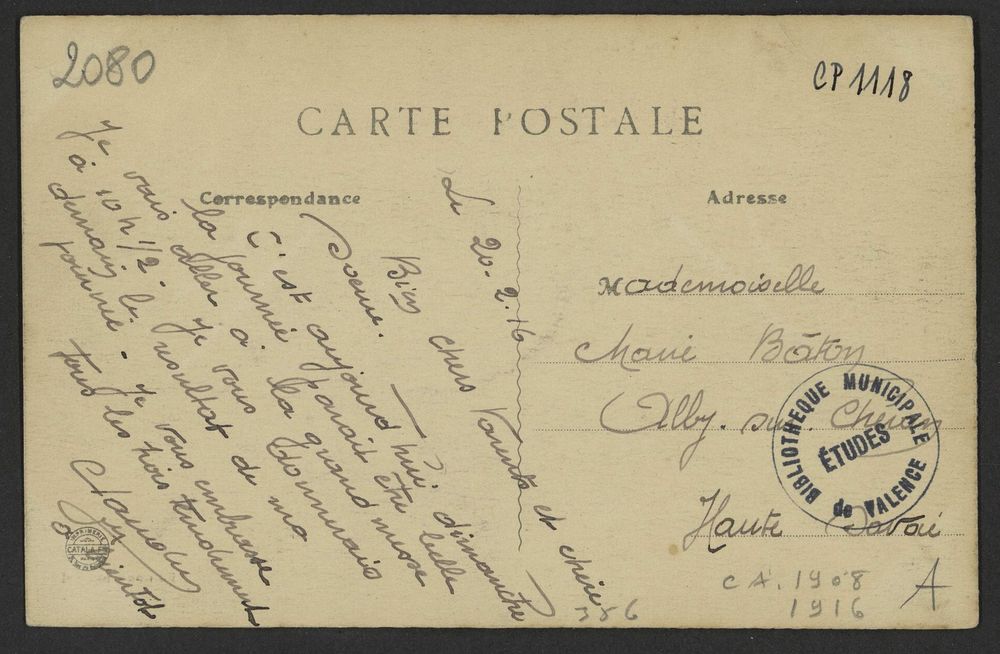 2080
CP 1118
CARTE POSTALE
Correspondance
Adresse
Le 20.2.16
Bien chers Parents et chère
Soeur.
C'est aujourd'hui dimanche
la journée parait être belle
Je vais aller à la grand messe
à 10h 1/2. Je vous donnerais
demain le résultat de ma
journée. Je vous embrasse
tous les trois tendrement
Mademoiselle
Marie Bâton
Alby. sur. Chéran
Haute Savoie
BIBLIOTHEQUE MUNICIPALE
ÉTUDES
de VALENCE
IMPRIMERIE
CATALA F
CA. 1908
1916
A